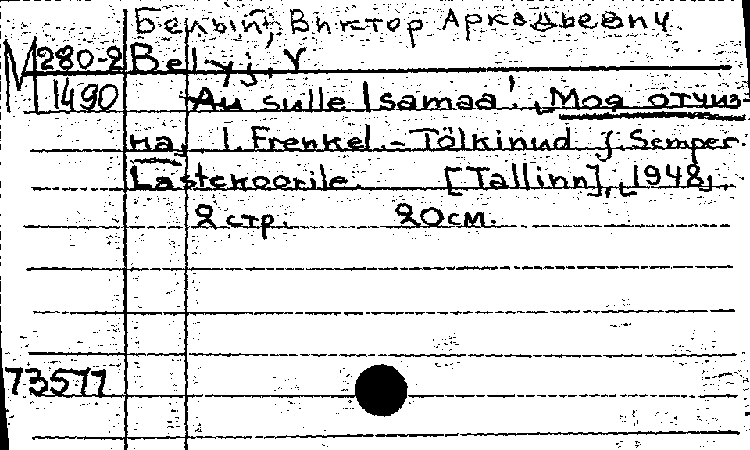 Белый, Виктор Аркадьевич.
М 280-2 Belyj, V
1490 Au sulle Isamaa!, Моя отчиз-
на, I. Frenkel.- Tõlkinud J. Semper.
Lastekoorile. [Tallinn], [1948].
2 стр. 20см.
73577